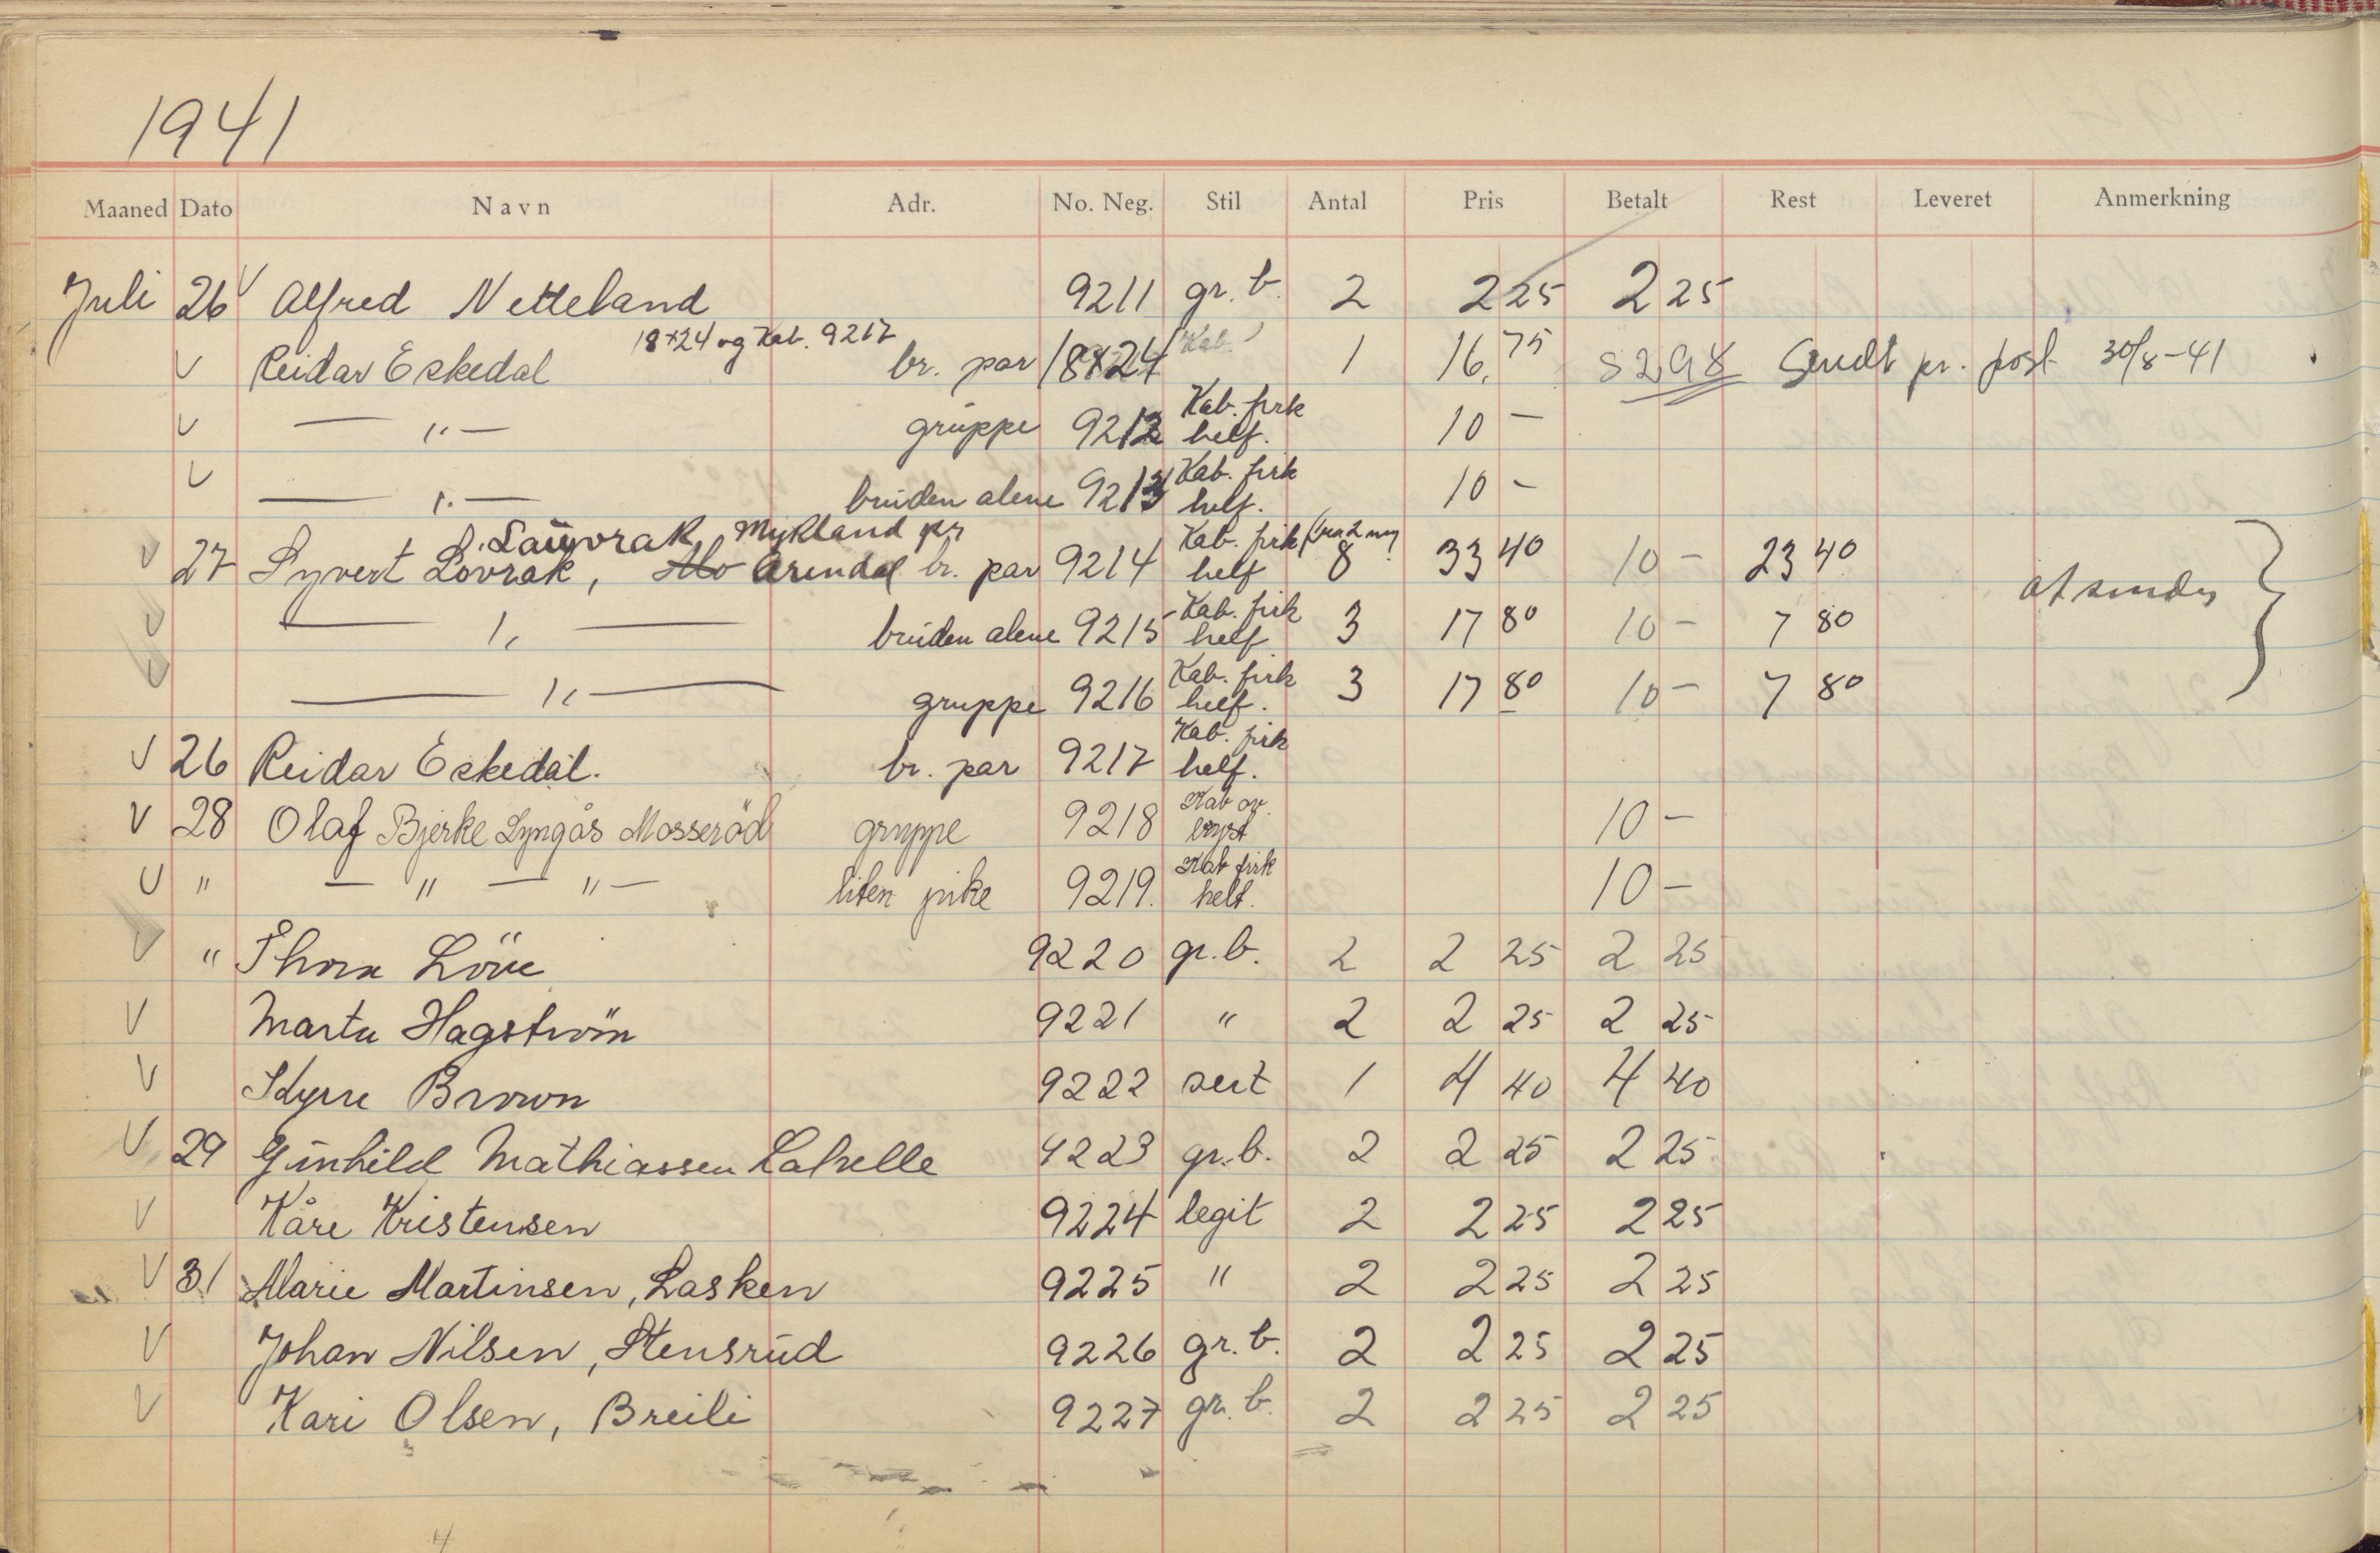 1941
Maaned Dato Navn Adr. No. Neg. Stil Antal Pris Betalt Rest Leveret Anmerkning
Juli 26 V Alfred Netteland 9211 gr. b. 2 2 25 2 25
18×24 og Kab. 9217
V Reidar Eskedal br. par 18×24 Kab. 1 16,75 Sendt pr. post 30/8-41
V — " — gruppe 9212 Kab. firk helf. 10 -
V — " — bruden alene 9213 Kab. firk helf. 10 -
Lauvrak, Mykland pr
V 27 Syvert Lovrak, Mo Arendal br. par 9214 Kab. firk helf 8 33 40 10 - 23 40
V — " — bruden alene 9215 Kab. firk helf 3 17 80 10 - 7 80 at sendes
V — " — gruppe 9216 Kab. firk helf. 3 17 80 10 - 7 80
V 26 Reidar Eskedal. br. par 9217 Kab. firk helf.
V 28 Olaf Bjerke Lyngås Mosserød gruppe 9218 Kab ov. bryst 10 -
V " — " — " — liten pike 9219. Kab firk helt. 10 -
V " Thora Löve 9220 gr. b. 2 2 25 2 25
V Marta Hagström 9221 " 2 2 25 2 25
V Brown 9222 sert 1 4 40 4 40
V 29 Gunhild Mathiassen Lahelle 9223 gr. b. 2 2 25 2 25
V Kåre Kristensen 9224 legit 2 2 25 2 25
V 31 Marie Martinsen, Lasken 9225 " 2 2 25 2 25
V Johan Nilsen, Stensrud 9226 gr. b. 2 2 25 2 25
V Kari Olsen, Breili 9227 gr. b. 2 2 25 2 25